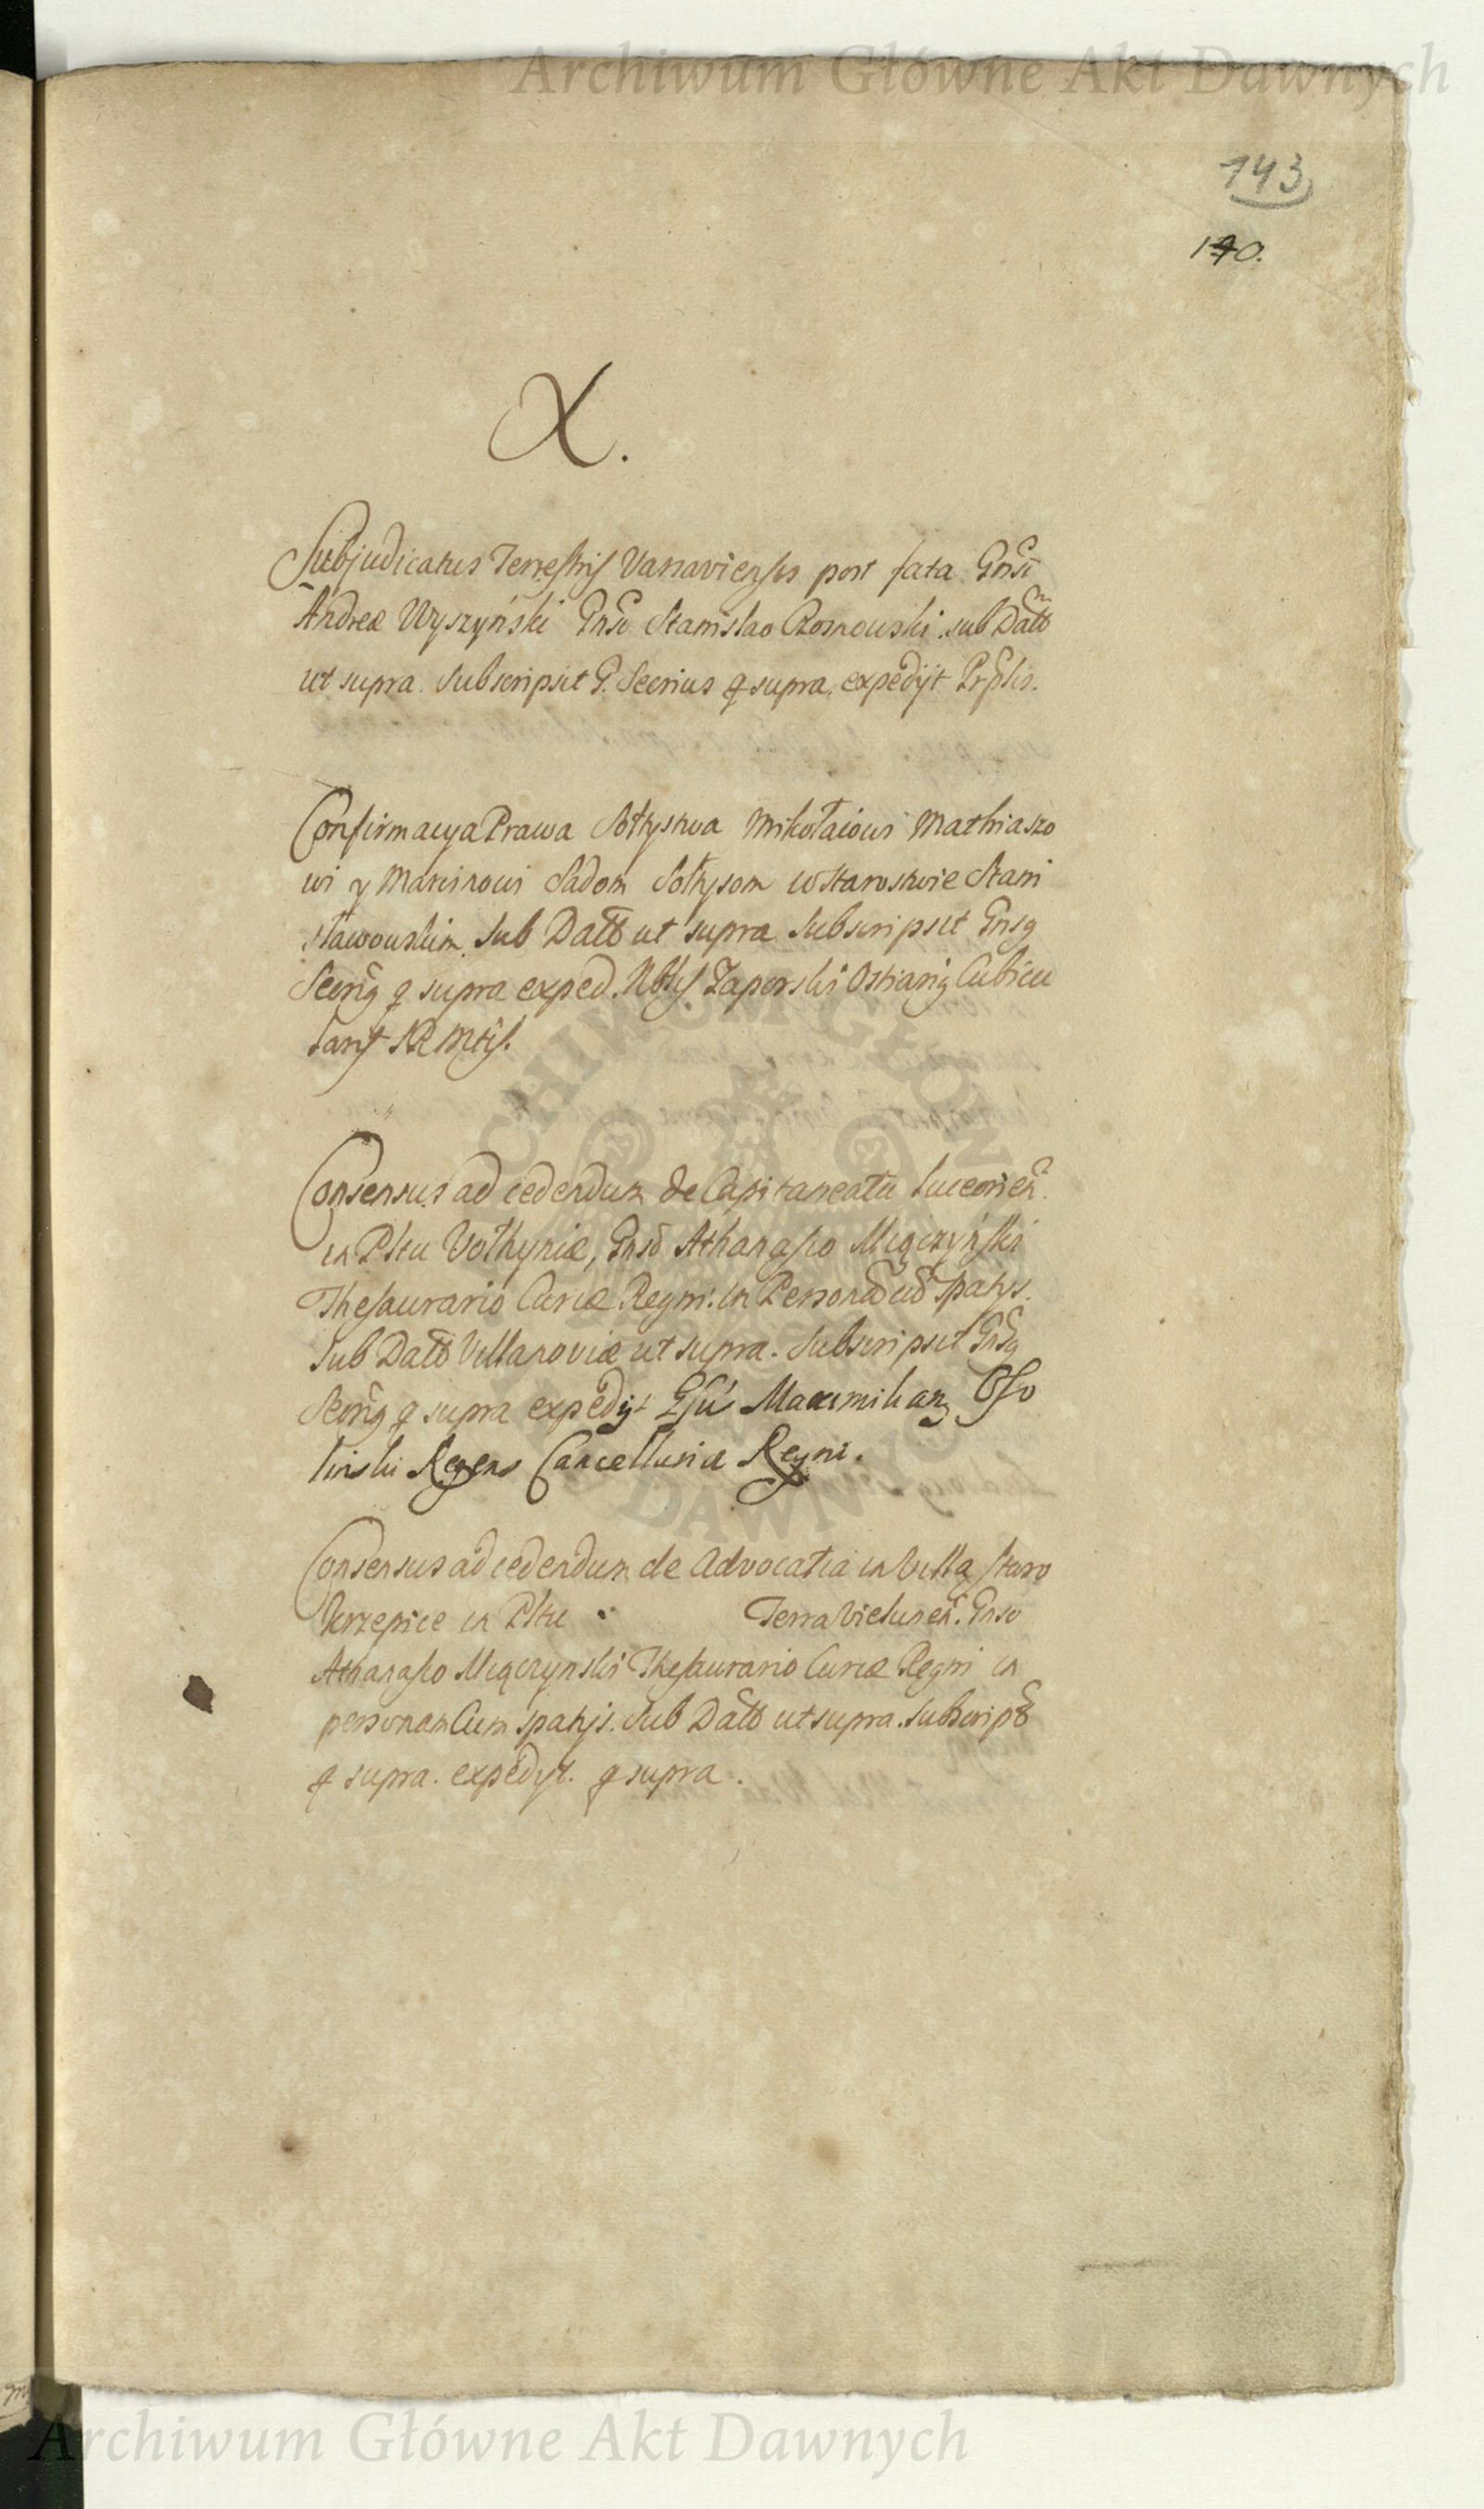 Archiwum Główne Akt Dawnych
143
140.
X.
Subjudicatus Terrestris Varsaviensis post fata Gnsi
Andreæ Wyszyński Gnso Stanislao Czosnowski. sub Datt
ut supra. Subscripsit G. Secrius q supra. expedijt
Confirmacya Prawa Sołtystwa Mikołaiowi Mathiaszo
wi y Marcinowi Sadom Sołtysom w Starostwie Stani
sławowskim. Sub Datt ut supra Subscripsit Gnsq
Secriq q supra exped. Nblis Zaporski Ostiariq Cubicu
laris SR Mtis.
Consensus ad cedendum de Capitaneatu Luceorien.
in Pltu Vołhyniæ, Gnso Athanasio Miączyński
Thesaurario Curiæ Regni. in Personã cũ Spatys.
Sub Datt Villanoviæ ut supra. Subscripsit Gnsq
Secriq q supra expedijt Maximilianq Osso
liński Regens Cancellariæ Regni.
Consensus ad cedendum de Advocatia in Villa Staro
krzepice in Pltu Terra Vielunen. Gnso
Athanasio Miączynski Thesaurario Curiæ Regni in
personam Cum Spatijs. Sub Datt ut supra. Subscript
q supra. expedyt. q supra.
ARCHIWUM GŁÓWNE
AKT DAWNYCH
Archiwum Główne Akt Dawnych